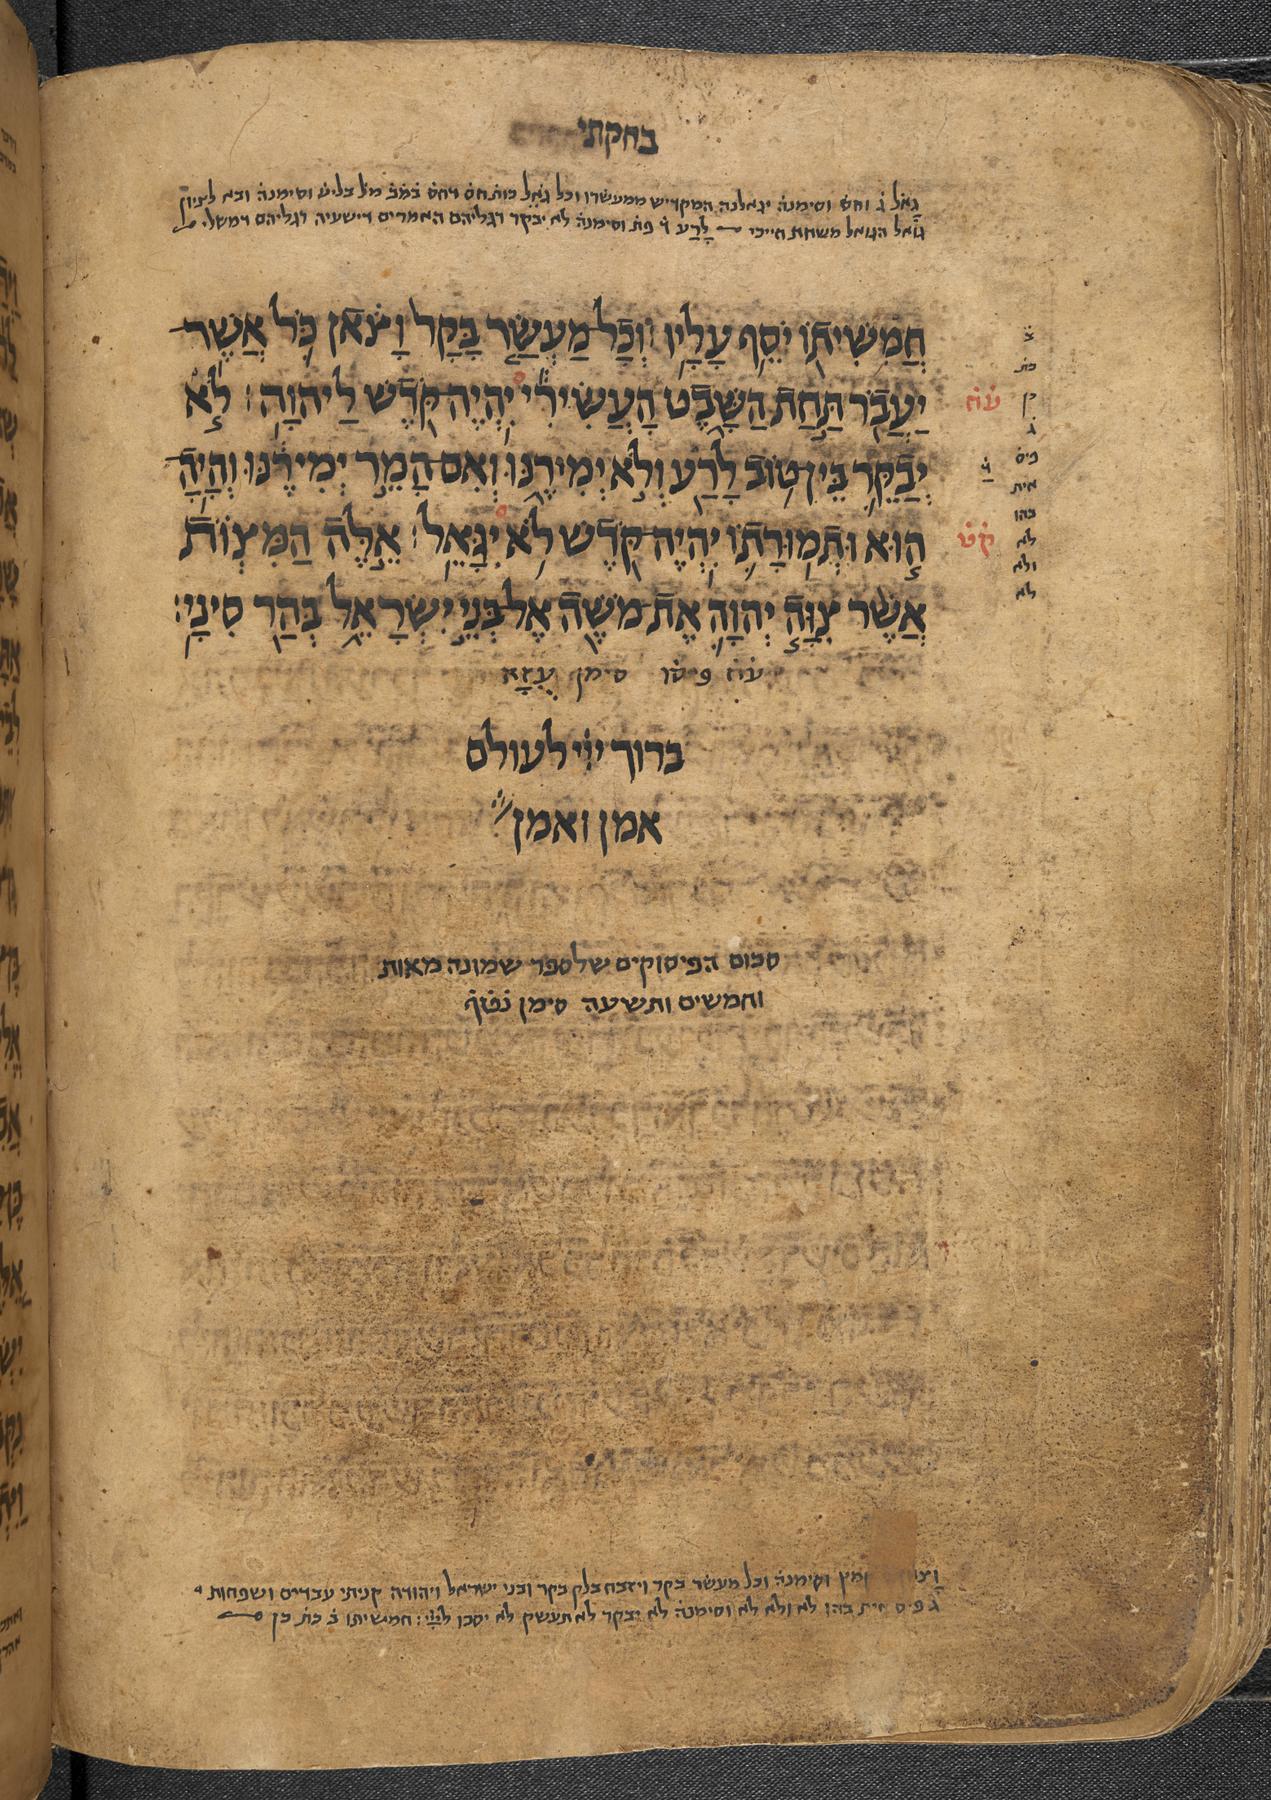 בחקתי
גאל ג וחס וסימנה יגאלנה המקדיש ממעשרו וכל גאל כות חס דחס במב מל בליש וסימנה ובא לציון
גואל הגואל משחת חייכי לרע ד פת וסימנה לא יבקר רגליהם האמרים דישעיה רגליהם דמשלי
חֲמִשִׁיתוֹ יֹסֵף עָלָיו וְכָל מַעְשַׂר בָּקָר וָצֹאן כֹּל אֲשֶׁר
יַעֲבֹר תַּחַת הַשָּׁבֶט הָעֲשִׂירִי יִהְיֶה קֹּדֶשׁ לַיהוָה׃ לֹא
יְבַקֵּר בֵּין טוֹב לָרַע וְלֹא יְמִירֶנּוּ וְאִם הָמֵר יְמִירֶנּוּ וְהָיָה
הוּא וּתְמוּרָתוֹ יִהְיֶה קֹּדֶשׁ לֹא יִגָּאֵל׃ אֵלֶּה הַמִּצְוֹת
אֲשֶׁר צִוָּה יְהוָה אֶת מֹשֶׁה אֶל בְּנֵי יִשְׂרָאֵל בְּהַר סִינָי׃
כת
ן
ג
עח
ד
פיס
אית
בהו
לא
קט
ולא
לא
עח פיסו סימן עֻזָא
ברוך ייי לעולם
אמן ואמן
סכום הפיסוקים שלספר שמונה מאות
וחמשים ותשעה סימן נטף
קמץ וסימנה וכל מעשר בקר ויזבח בלק בקר ובני ישראל ויהודה קניתי עבדים ושפחות
ג פיס אית בהו לא ולא לא וסימנה לא יבקר לא תעשק לא יסכו ליוי׃ חמישיתו ב כת כן